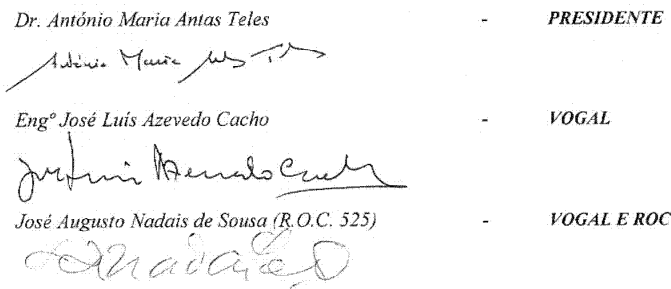 Dr. António Maria Antas Teles - PRESIDENTE
António Maria Antas Teles
Engº José Luís Azevedo Cacho - VOGAL
José Luís Azevedo Cacho
José Augusto Nadais de Sousa (R.O.C. 525) - VOGAL E ROC